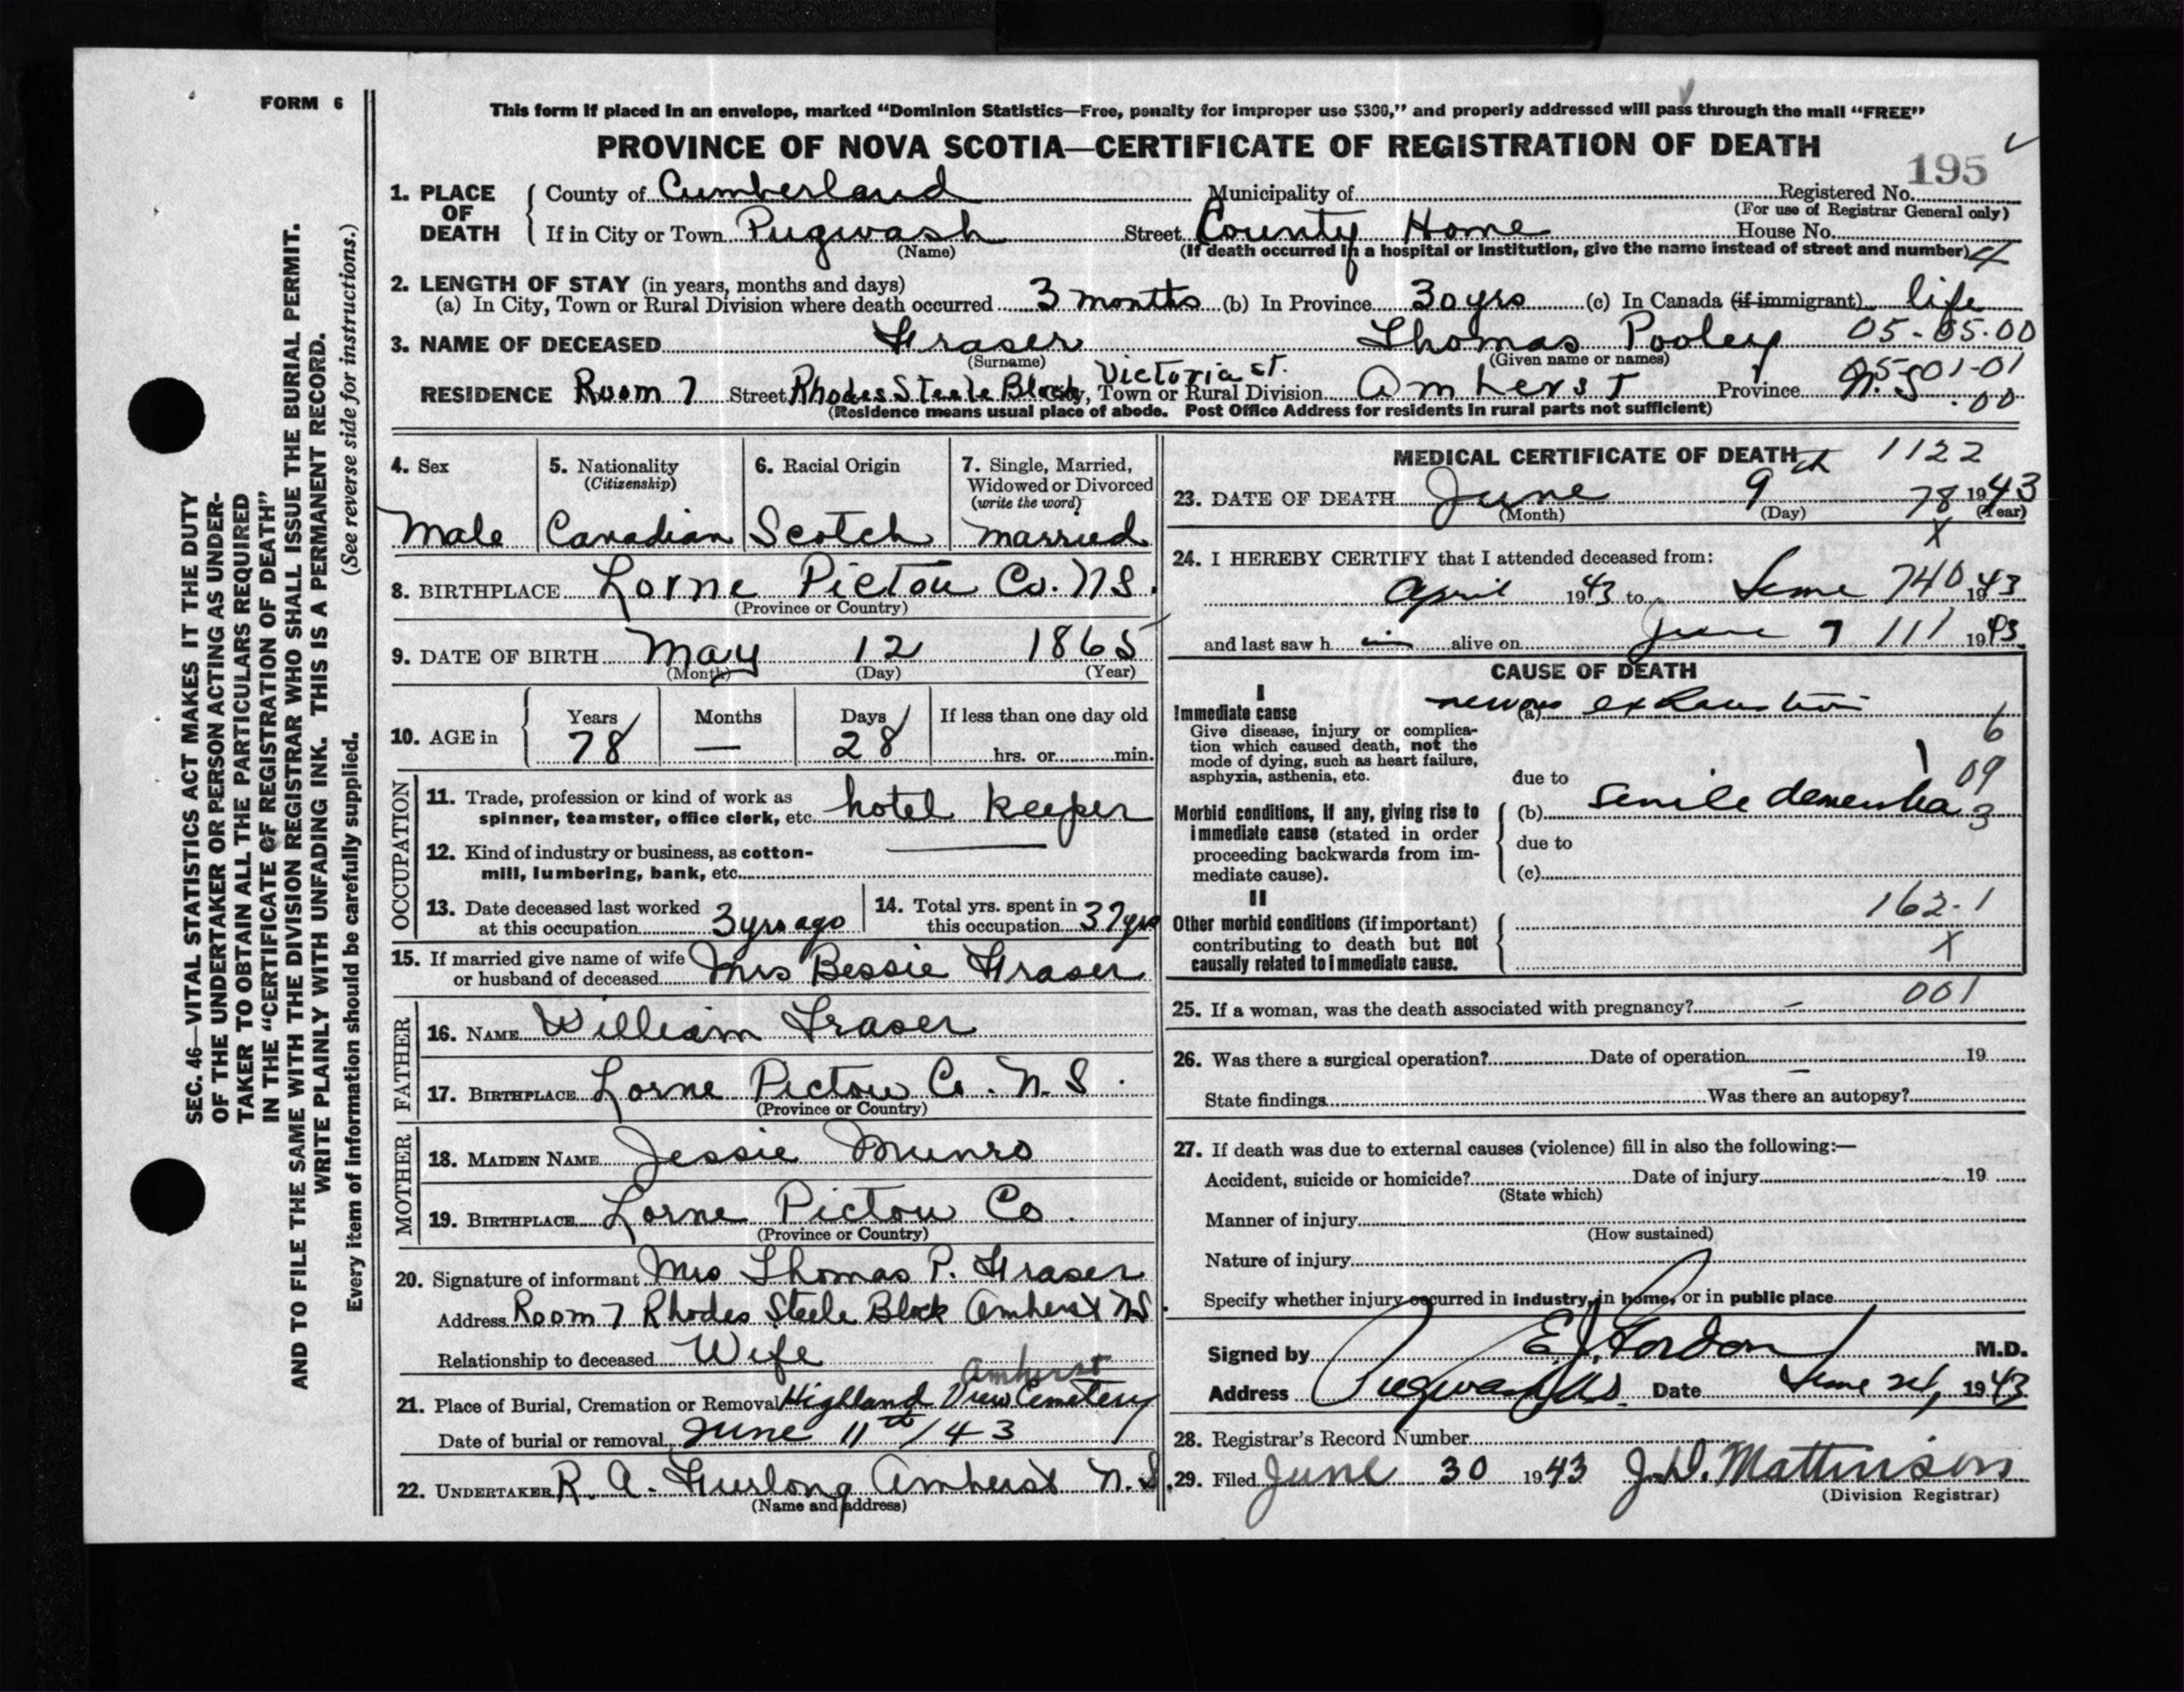 FORM 6
This form if placed in an envelope, marked “Dominion Statistics—Free, penalty for improper use $300,” and properly addressed will pass through the mail “FREE”
PROVINCE OF NOVA SCOTIA—CERTIFICATE OF REGISTRATION OF DEATH
195
1. PLACE OF DEATH
County of Cumberland Municipality of Registered No.
(For use of Registrar General only)
If in City or Town Pugwash Street County Home House No.
(Name) (If death occurred in a hospital or institution, give the name instead of street and number) 4
2. LENGTH OF STAY (in years, months and days)
(a) In City, Town or Rural Division where death occurred 3 months (b) In Province 30 yrs (c) In Canada (if immigrant) life
3. NAME OF DECEASED Fraser Thomas Pooley 05-05.00
(Surname) (Given name or names)
RESIDENCE Room 7 Street Rhodes Steele Block Victoria St. City, Town or Rural Division Amherst Province N.S. 05-01-01
.00
(Residence means usual place of abode. Post Office Address for residents in rural parts not sufficient)
4. Sex
Male
5. Nationality
(Citizenship)
Canadian
6. Racial Origin
Scotch
7. Single, Married, Widowed or Divorced
(write the word)
married
8. BIRTHPLACE Lorne Pictou Co. N.S.
(Province or Country)
9. DATE OF BIRTH May 12 1865
(Month) (Day) (Year)
10. AGE in Years Months Days If less than one day old
78 — 28 hrs. or min.
OCCUPATION
11. Trade, profession or kind of work as
spinner, teamster, office clerk, etc. hotel keeper
12. Kind of industry or business, as cotton-
mill, lumbering, bank, etc.
13. Date deceased last worked
at this occupation 3 yrs ago
14. Total yrs. spent in
this occupation 37 yrs
15. If married give name of wife
or husband of deceased Mrs Bessie Fraser
FATHER
16. NAME William Fraser
17. BIRTHPLACE Lorne Pictou Co. N.S.
(Province or Country)
MOTHER
18. MAIDEN NAME Jessie Munro
19. BIRTHPLACE Lorne Pictou Co.
(Province or Country)
20. Signature of informant Mrs Thomas P. Fraser
Address Room 7 Rhodes Steele Block Amherst N.S.
Relationship to deceased Wife
Amherst
21. Place of Burial, Cremation or Removal Highland View Cemetery
Date of burial or removal June 11th/43
22. UNDERTAKER R. A. Furlong Amherst N.S.
(Name and address)
MEDICAL CERTIFICATE OF DEATH 1122
23. DATE OF DEATH June 9th 78 1943
(Month) (Day) (Year)
X
24. I HEREBY CERTIFY that I attended deceased from:
April 1943 to June 740 1943
and last saw h im alive on June 7 111 1943
CAUSE OF DEATH
I
Immediate cause
Give disease, injury or complica-
tion which caused death, not the
mode of dying, such as heart failure,
asphyxia, asthenia, etc.
(a) nervous exhaustion
6
due to
09
Morbid conditions, if any, giving rise to
immediate cause (stated in order
proceeding backwards from im-
mediate cause).
(b) senile dementia 3
due to
(c)
II
Other morbid conditions (if important)
contributing to death but not
causally related to immediate cause.
162-1
X
25. If a woman, was the death associated with pregnancy? – 001
26. Was there a surgical operation? Date of operation 19
State findings Was there an autopsy?
27. If death was due to external causes (violence) fill in also the following:—
Accident, suicide or homicide? Date of injury 19
(State which)
Manner of injury
(How sustained)
Nature of injury
Specify whether injury occurred in industry, in home, or in public place
Signed by E.J. Gordon M.D.
Address Pugwash N.S. Date June 1943
28. Registrar's Record Number
29. Filed June 30 1943 Mattinson
(Division Registrar)
SEC. 46—VITAL STATISTICS ACT MAKES IT THE DUTY
OF THE UNDERTAKER OR PERSON ACTING AS UNDER-
TAKER TO OBTAIN ALL THE PARTICULARS REQUIRED
IN THE “CERTIFICATE OF REGISTRATION OF DEATH”
AND TO FILE THE SAME WITH THE DIVISION REGISTRAR WHO SHALL ISSUE THE BURIAL PERMIT.
WRITE PLAINLY WITH UNFADING INK. THIS IS A PERMANENT RECORD.
Every item of information should be carefully supplied. (See reverse side for instructions.)